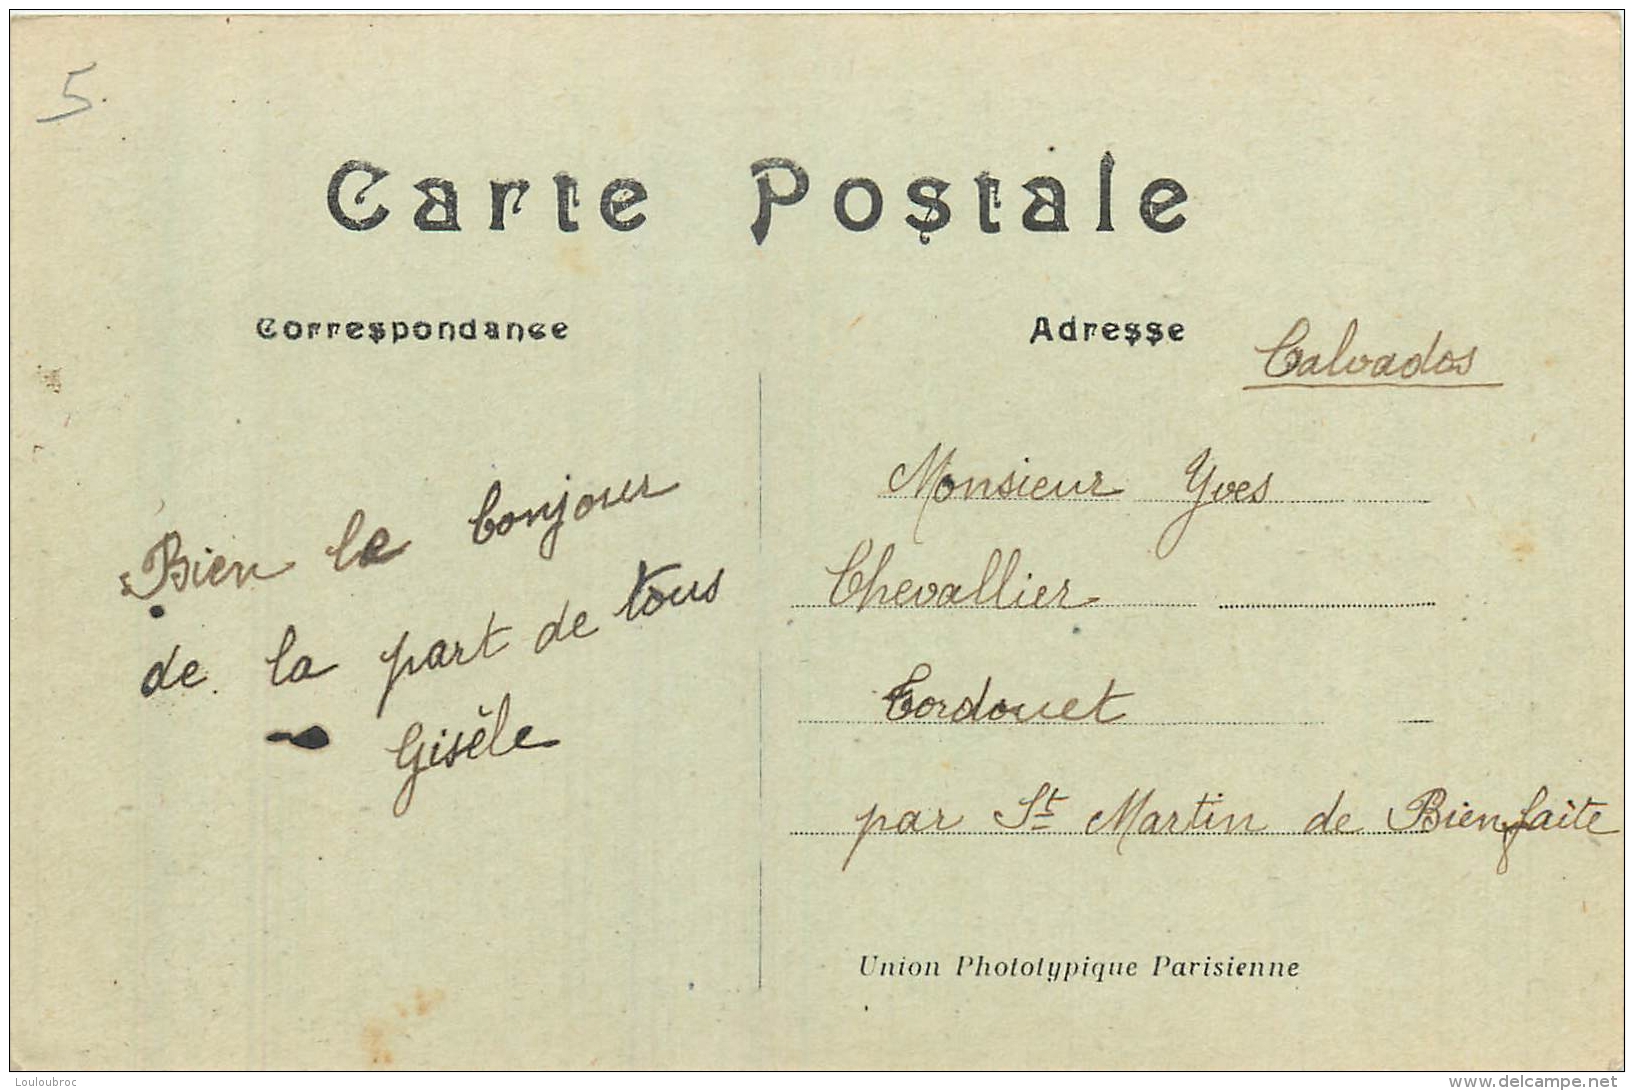 5.
Carte Postale
Correspondance
Adresse
Calvados
Bien le bonjour
de la part de tous
Gisèle
Monsieur Yves
Chevallier
Tordouet
par St Martin de Bienfaite
Union Phototypique Parisienne
Louloubroc
www.delcampe.net